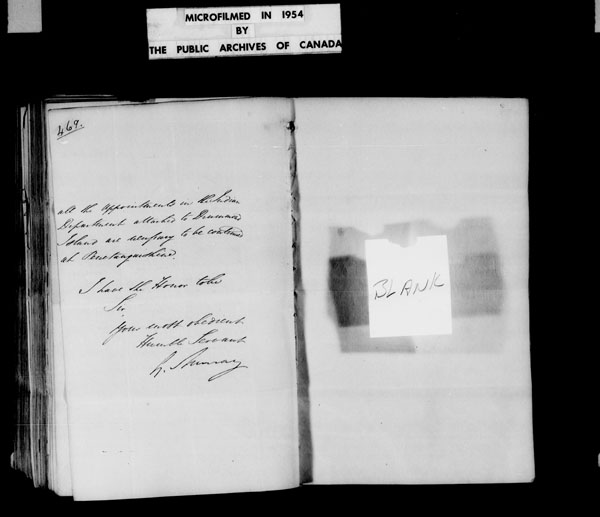 MICROFILMED IN 1954
BY
THE PUBLIC ARCHIVES OF CANADA
469.
all the appointments in the Indian
Department attached to Drummond
Island are necessary to be continued
at Penetanguishine.
I have the Honor to be
Sir
Your most obedient
Humble Servant
BLANK